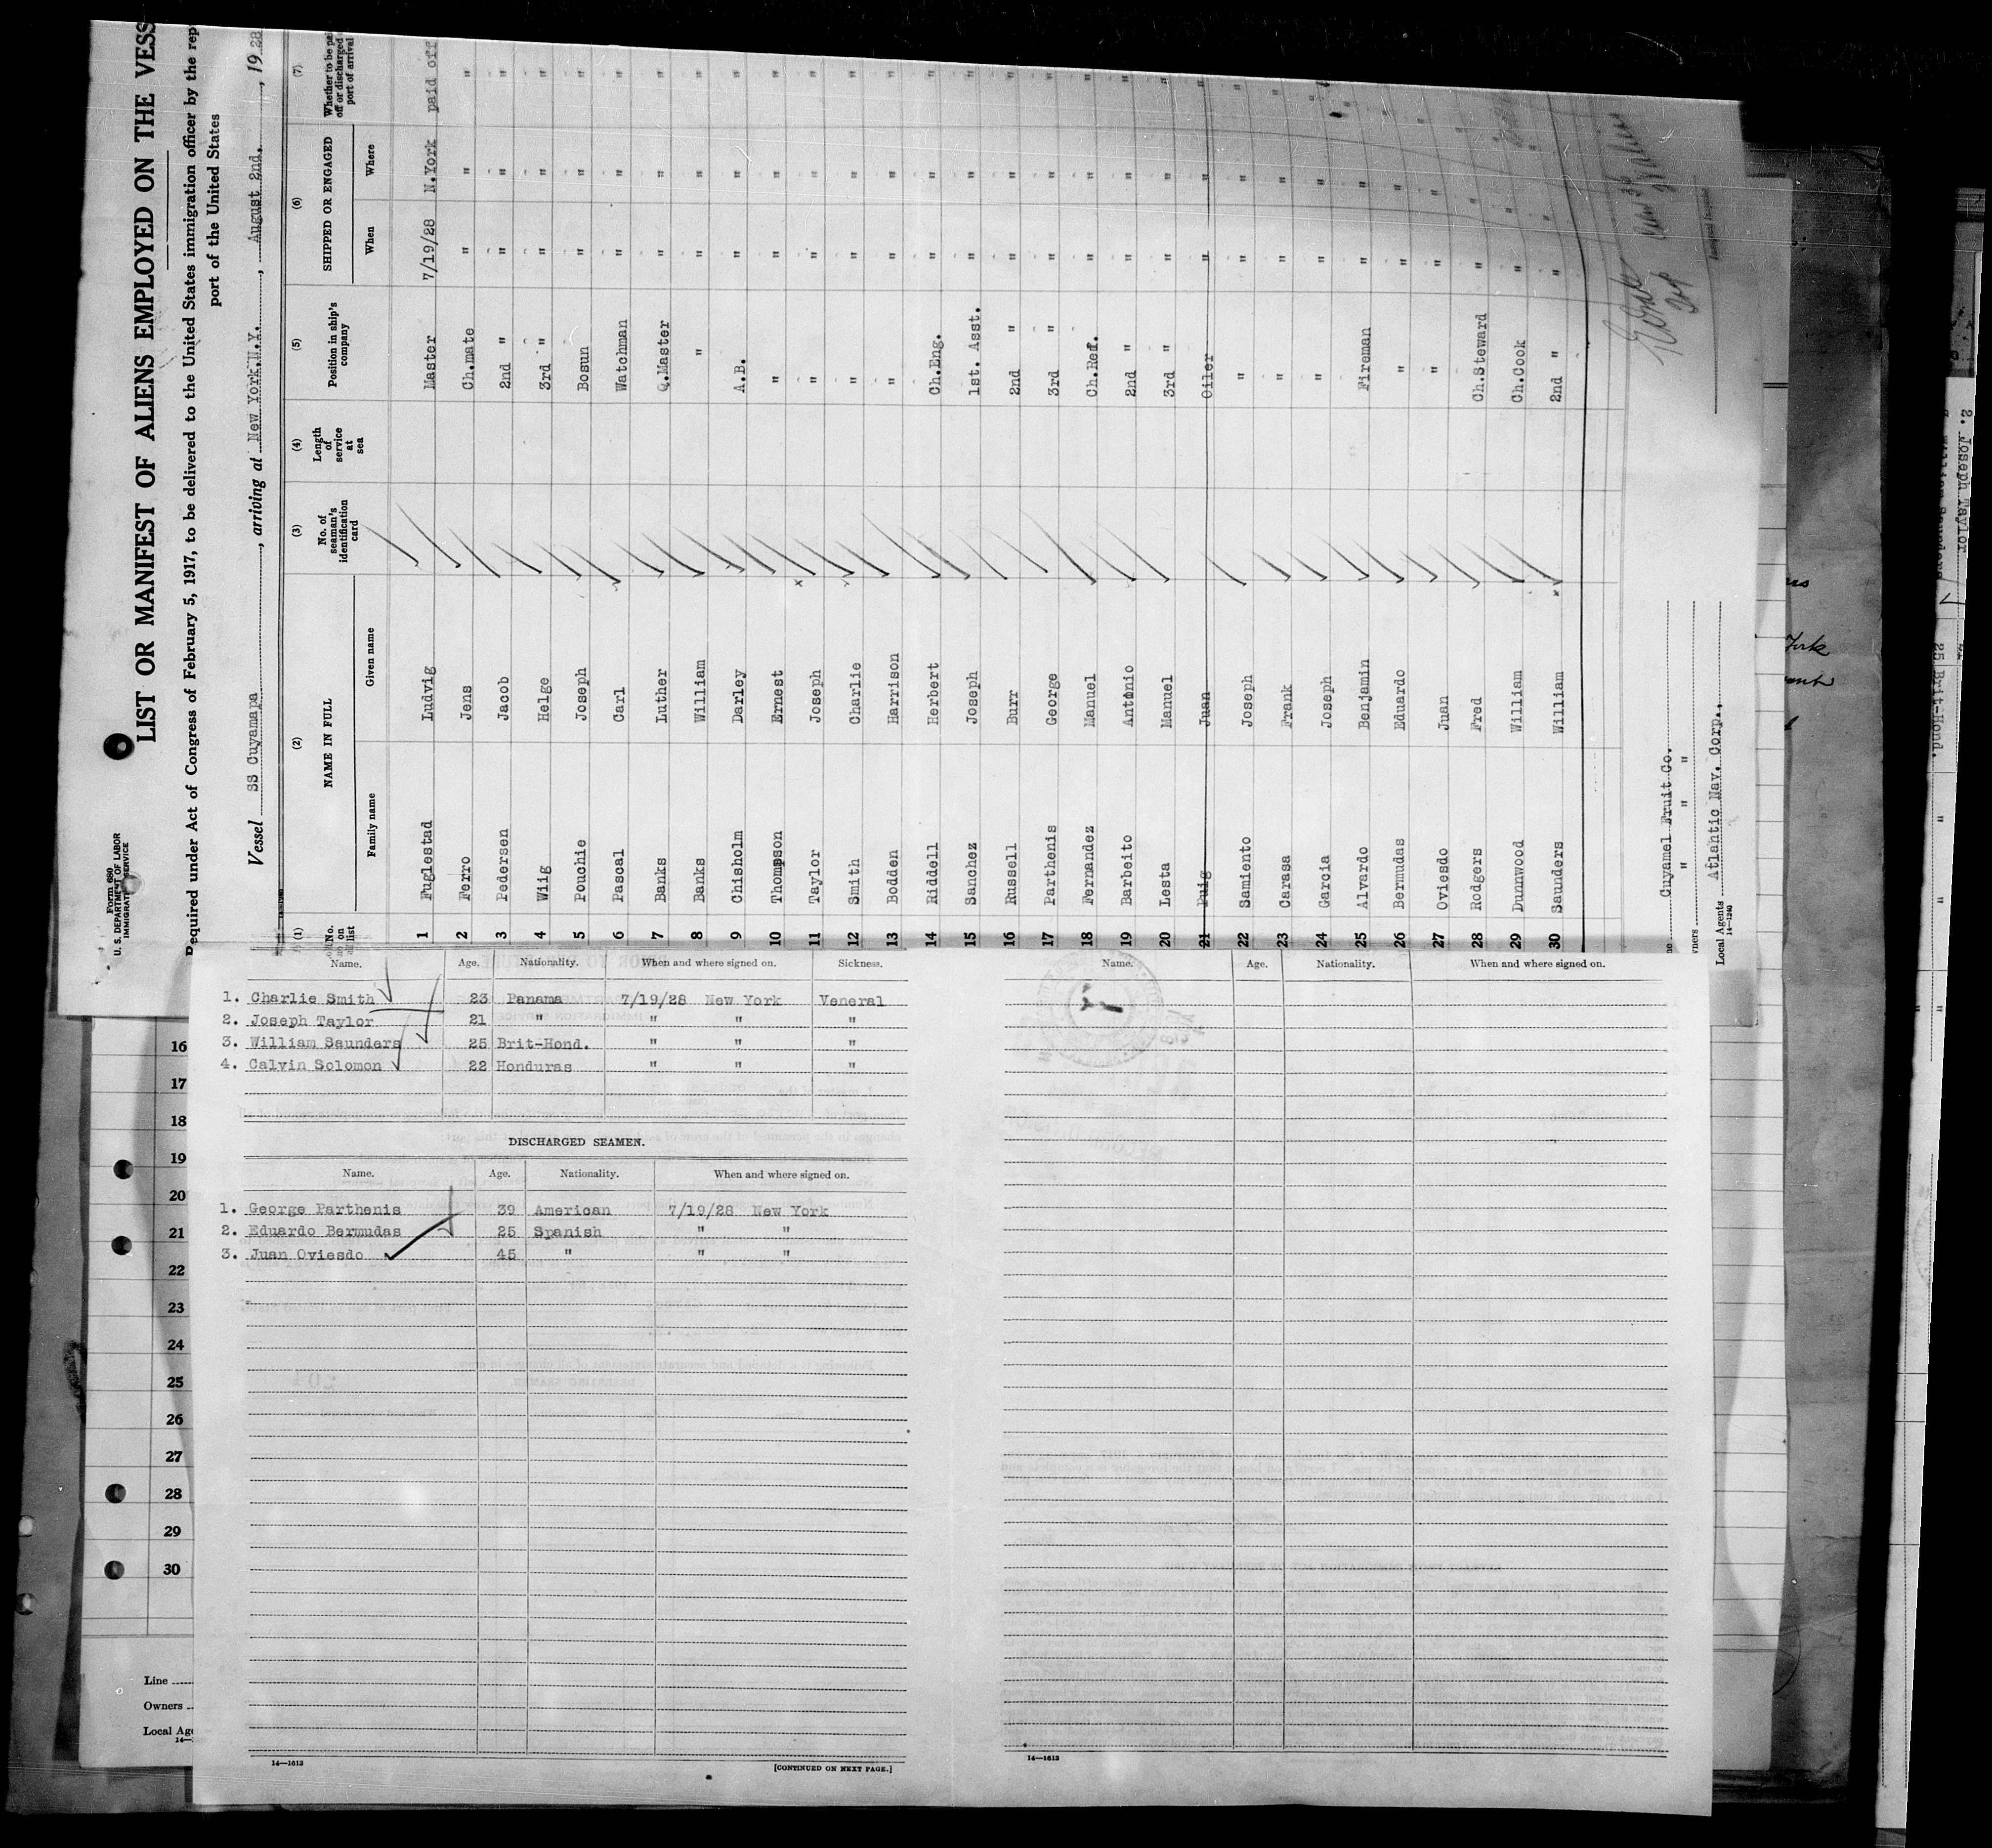 Form 680
U. S. DEPARTMENT OF LABOR
IMMIGRATION SERVICE
LIST OR MANIFEST OF ALIENS EMPLOYED ON THE VESS
Required under Act of Congress of February 5, 1917, to be delivered to the United States immigration officer by the rep
port of the United States
Vessel SS Cuyamapa, arriving at New York.N.Y., August 2nd., 1928
(1) (2) (3) (4) (5) (6) (7)
No. on list NAME IN FULL No. of seaman's identification card Length of service at sea Position in ship's company SHIPPED OR ENGAGED Whether to be pai off or discharged port of arrival
Family name Given name When Where
1 Fuglestad Ludvig Master 7/19/28 N.York paid off
2 Ferro Jens Ch.mate " " "
3 Pedersen Jacob 2nd " " " "
4 Wiig Helge 3rd " " " "
5 Pouchie Joseph Bosun " " "
6 Pascal Carl Watchman " " "
7 Banks Luther Q.Master " " "
8 Banks William " " " "
9 Chisholm Darley A.B. " " "
10 Thompson Ernest " " " "
11 Taylor Joseph " " " "
12 Smith Charlie " " " "
13 Bodden Harrison " " " "
14 Riddell Herbert Ch.Eng. " " "
15 Sanchez Joseph 1st. Asst. " " "
16 Russell Burr 2nd " " " "
17 Parthenis George 3rd " " " "
18 Fernandez Manuel Ch.Ref. " " "
19 Barbeito Antonio 2nd " " " "
20 Lesta Manuel 3rd " " " "
21 Puig Juan Oiler " " "
22 Samiento Joseph " " " "
23 Carasa Frank " " " "
24 Garcia Joseph " " " "
25 Alvardo Benjamin Fireman " " "
26 Bermudas Eduardo " " " "
27 Oviesdo Juan " " " "
28 Rodgers Fred Ch.Steward " "
29 Dunnwood William Ch.Cook " "
30 Saunders William 2nd " " "
Cuyamel Fruit Co.
wners " " "
Local Agents Atlantic Nav. Corp.,
14-1240
Name. Age. Nationality. When and where signed on. Sickness.
1. Charlie Smith 23 Panama 7/19/28 New York Veneral
2. Joseph Taylor 21 " " " "
3. William Saunders 25 Brit-Hond. " " "
4. Calvin Solomon 22 Honduras " " "
DISCHARGED SEAMEN.
Name. Age. Nationality. When and where signed on.
1. George Parthenis 39 American 7/19/28 New York
2. Eduardo Bermudas 25 Spanish " "
3. Juan Oviesdo 45 " " "
14—1613
[CONTINUED ON NEXT PAGE.]
Name. Age. Nationality. When and where signed on.
14—1613
16
17
18
19
20
21
22
23
24
25
26
27
28
29
30
Line
Owners
Local Age
2. Joseph Taylor
25 Brit-Hond.
York